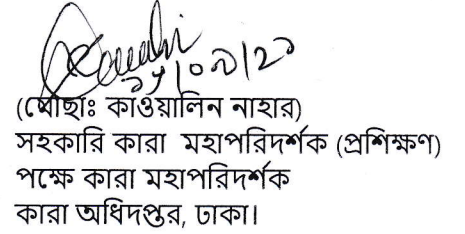 (মোছাঃ কাওয়ালিন নাহার)
সহকারি কারা মহাপরিদর্শক (প্রশিক্ষণ)
পক্ষে কারা মহাপরিদর্শক
কারা অধিদপ্তর, ঢাকা।